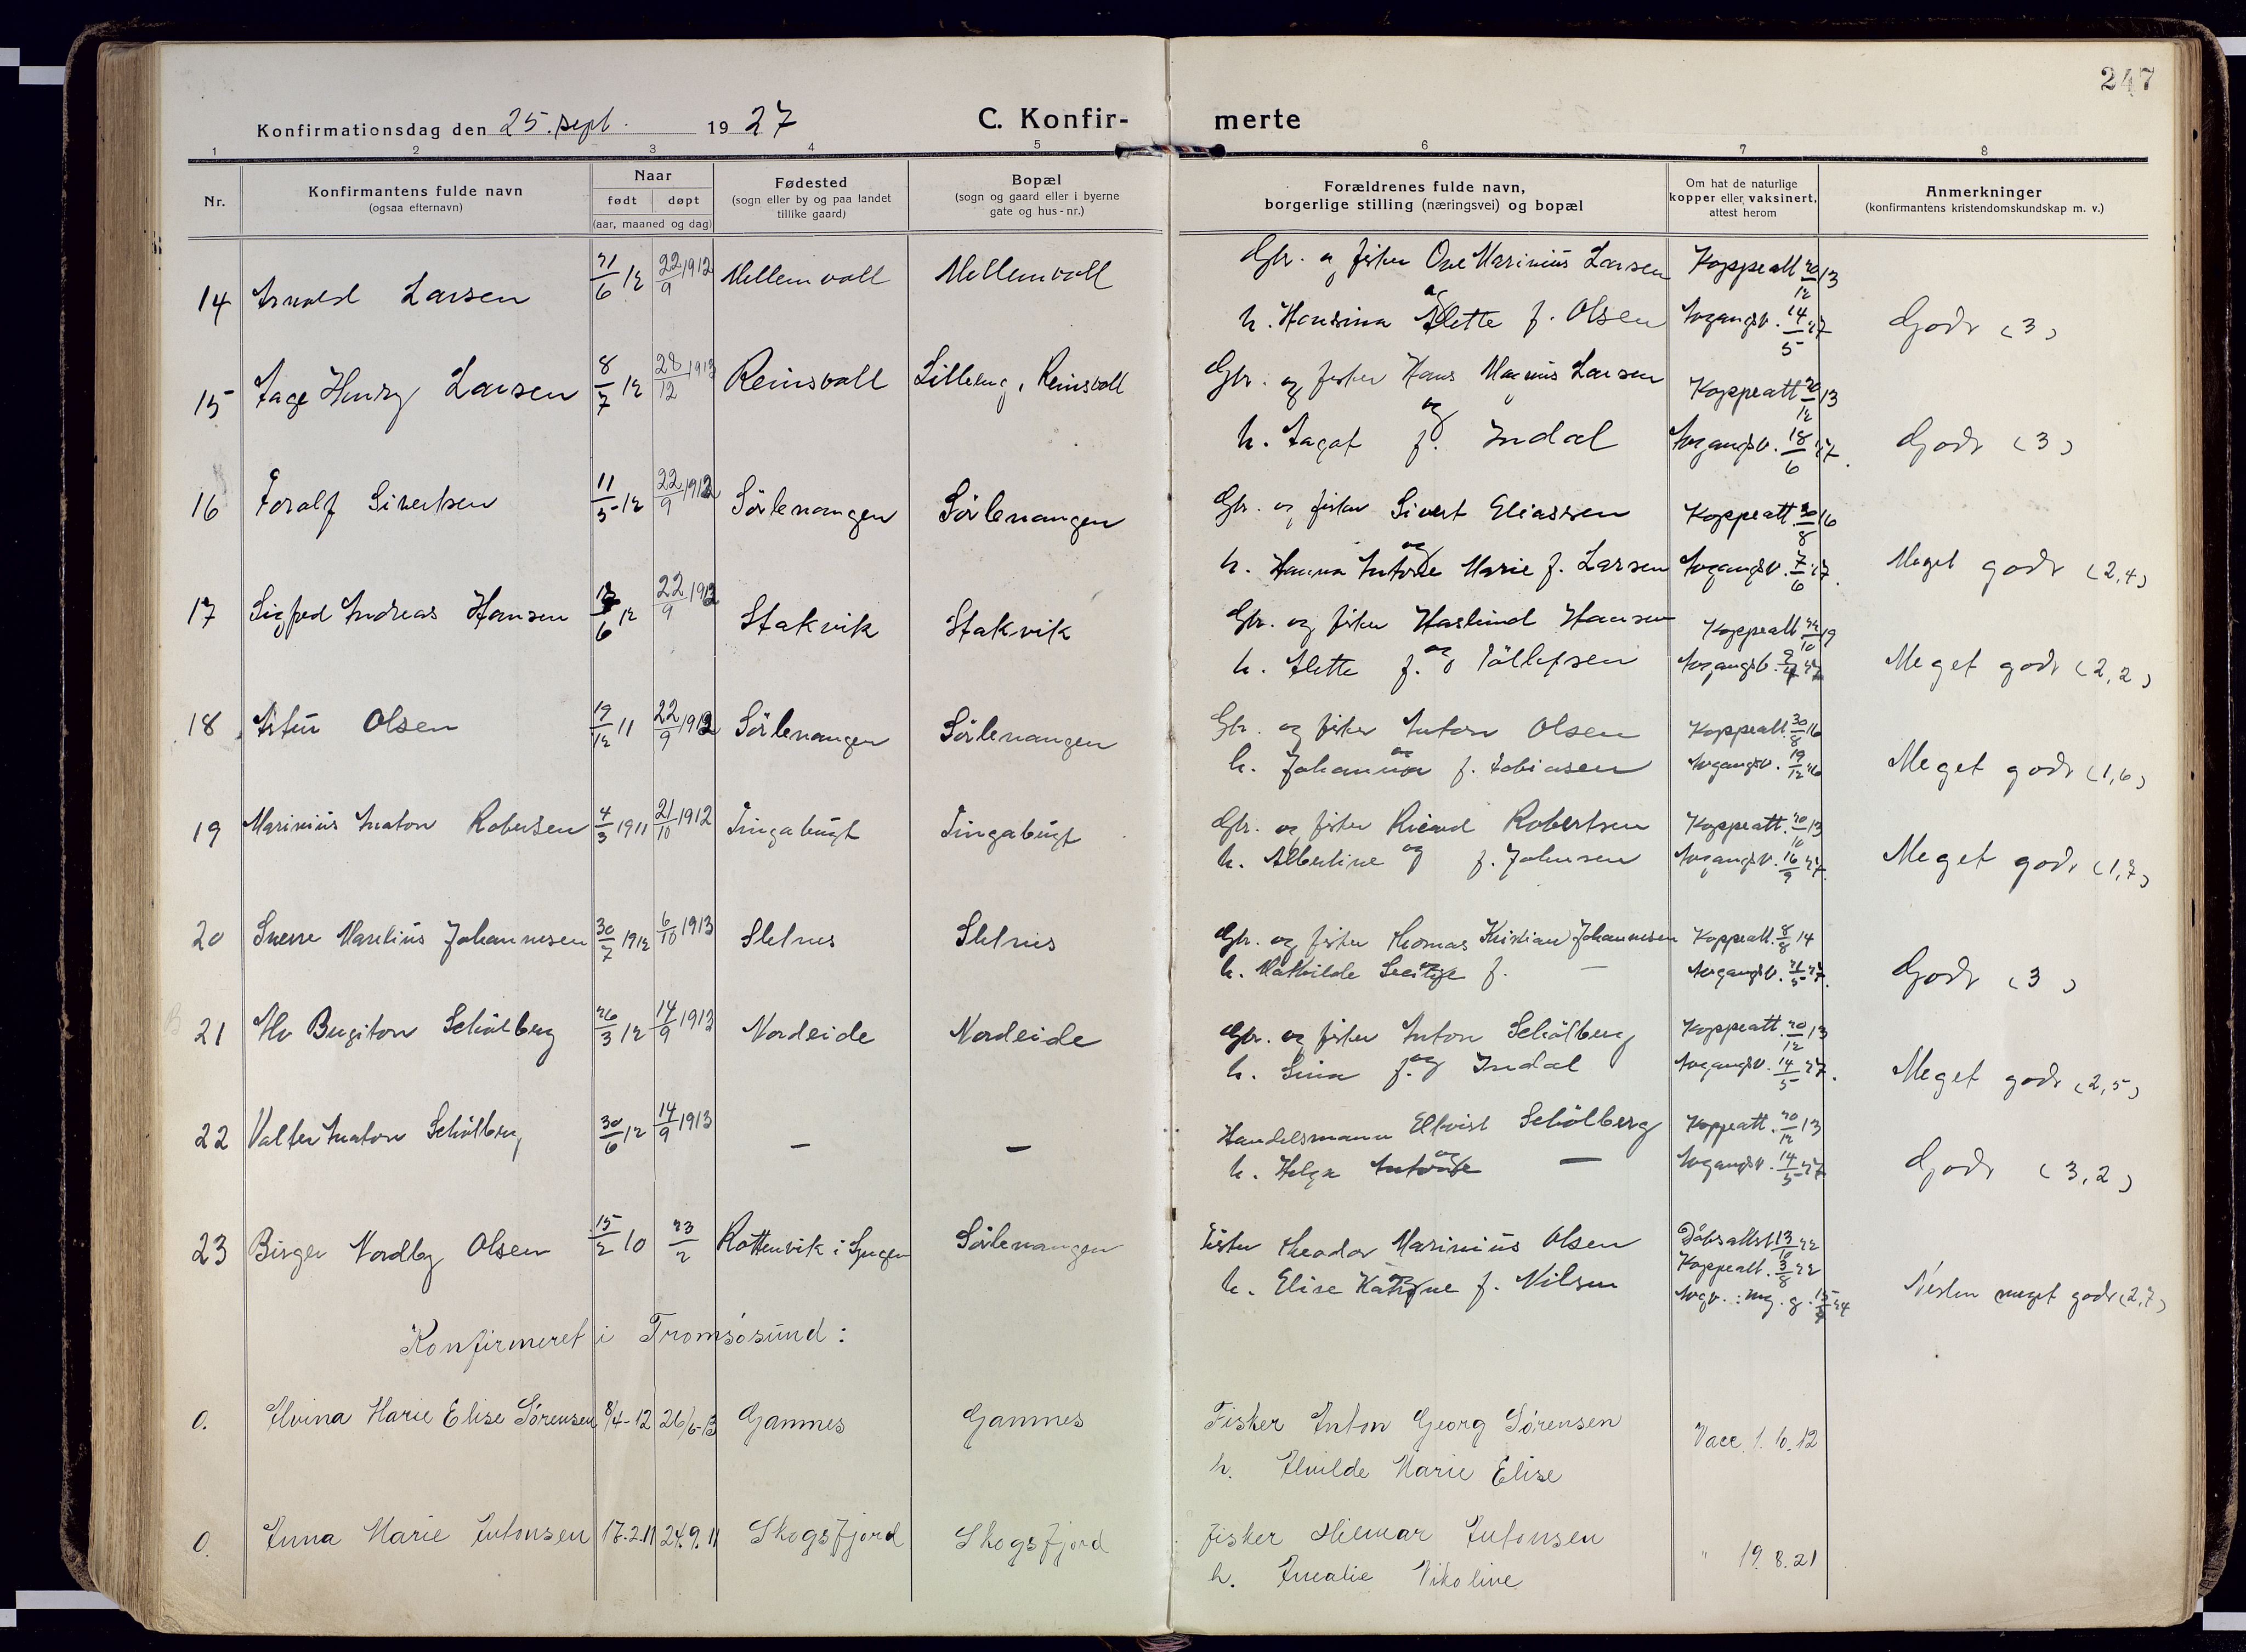 247
Konfirmationsdag den 25. sept. 1927 C. Konfir- merte
1 2 3 4 5 6 7 8
Nr.
Konfirmantens fulde navn
(ogsaa efternavn)
Naar
født døpt
(aar, maaned og dag)
Fødested
(sogn eller by og paa landet
tillike gaard)
Bopæl
(sogn og gaard eller i byerne
gate og hus-nr.)
Forældrenes fulde navn,
borgerlige stilling (næringsvei) og bopæl
Om hat de naturlige
kopper eller vaksinert,
attest herom
Anmerkninger
(konfirmantens kristendomskundskap m. v.)
14 Arnold Larsen 21/6 12 22/9 1912 Mellemvoll Mellemvoll Gbr. og fisker Ove Marinius Larsen Koppeatt 20/12 13
og
h. Hansina Alette f. Olsen Avgangsv. 14/5 27 Godt (3)
15 Aage Henry Larsen 8/7 12 28/12 1913 Reinsvoll Lilleng, Reinsvoll Gbr. og fisker Hans Magnus Larsen Koppeatt 20/12 13
og
h. Aagot f. Indal Avgangsv. 18/6 27. Godt (3)
16 Toralf Sivertsen 11/5 12 22/9 1912 Sörlenangen Sörlenangen Gbr. og fisker Sivert Eliassen Koppeatt. 30/8 16
og
h. Hanna Antone Marie f. Larsen Avgangsv. 7/6 27. Meget godt (2,4)
17 Sigfred Andreas Hansen 6 12 22/9 1912 Stakvik Stakvik Gbr. og fisker Haslund Hansen Koppeatt 22/10 19
og
h. Alette f. Tollefsen Avgangsv. 27 Meget godt (2,2)
18 Artur Olsen 19/12 11 22/9 1912 Sörlenangen Sörlenangen Gbr. og fisker Anton Olsen Koppeatt. 30/8 16
og
h. Johanna f. Tobiasen Avgangsv. 19/12 26 Meget godt (1,6)
19 Marinius Anton Robersen 4/3 1911 21/10 1912 Tingabugt Tingabugt Gbr. og fisker Ricard Robertsen Koppeatt. 20/10 13
h. Albertine og f. Johnsen Avgangsv. 16/9 27. Meget godt (1,7)
20 Sverre Marelius Johannesen 30/7 1912 6/10 1913 Sletnes Sletnes Gbr. og fisker Thomas Kristian Johannesen Koppeatt. 8/8 14
og
h. Mathilde f. — Avgangsv. 21/5 27. Godt (3)
21 Alv Birgiton Schölberg 26/3 12 14/9 1913 Nordeide Nordeide Gbr. og fisker Anton Schölberg Koppeatt. 20/12 13
h. Sina f. og Indal Avgangsv. 14/5 27. Meget godt (2,5)
22 Valter Anton Schölberg 30/6 12 14/9 1913 — — Handelsmann Elkvist Schölberg Koppeatt. 20/12 13
og
h. Helga Antonie — Avgangsv. 14/5 27 Godt (3,2)
23 Birger Nordby Olsen 15/2 10 23/2 Rottenvik i Lyngen Sörlenangen Fisker Theodor Marinius Olsen Dåbsattest 13/10 22
Koppeatt. 3/8 22
og
h. Elise Katrine f. Nilsen Avgv. : mg. g. 24 Nesten meget godt (2,7)
Konfirmeret i Tromsösund:
0. Alvina Marie Elise Sørensen 8/4-12 26/6-13 Gamnes Gamnes Fisker Anton Georg Sørensen Vacc. 1.10.12
h. Alvilde Marie Elise
0. Anna Marie Antonsen 17.2.11 24.9.11 Skogsfjord Skogsfjord Fisker Hilmar Antonsen " 19.8.21
h. Amalie Nikoline